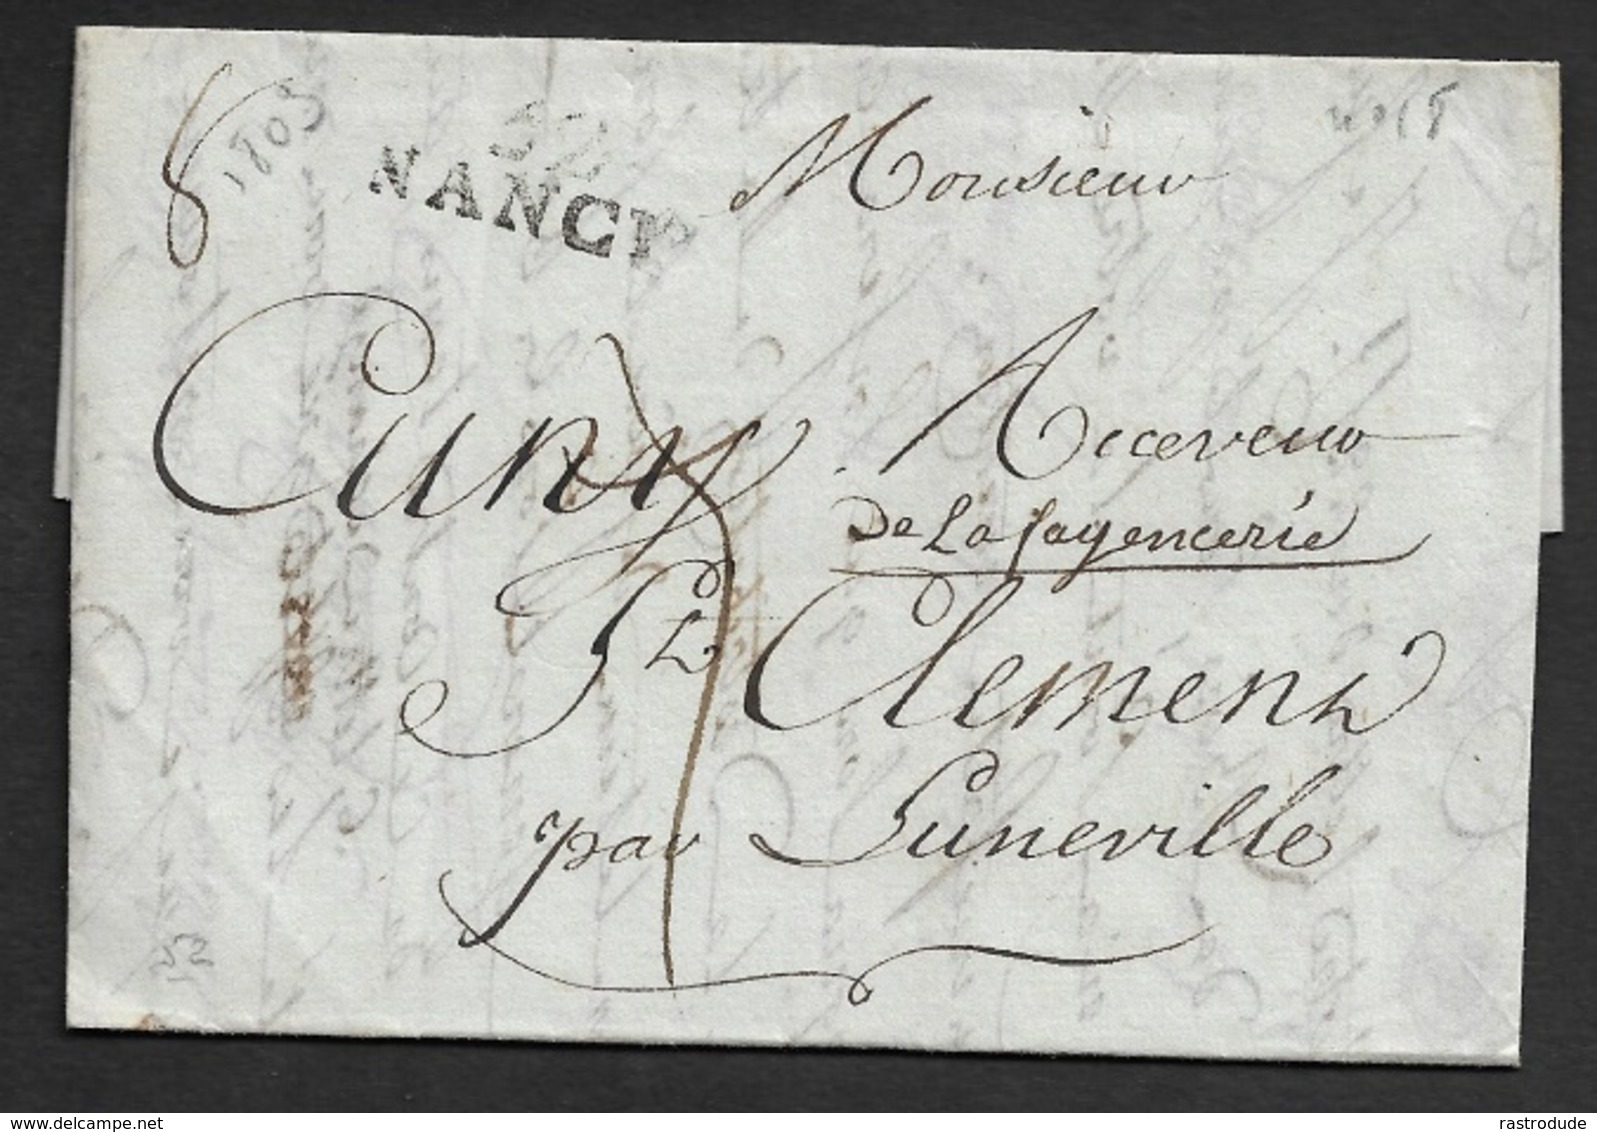 1803
52
NANCY
Monsieur
Cuny Receveur
De La fayencerie
St Clement
par Luneville
52
© www.delcampe.net
rastrodude